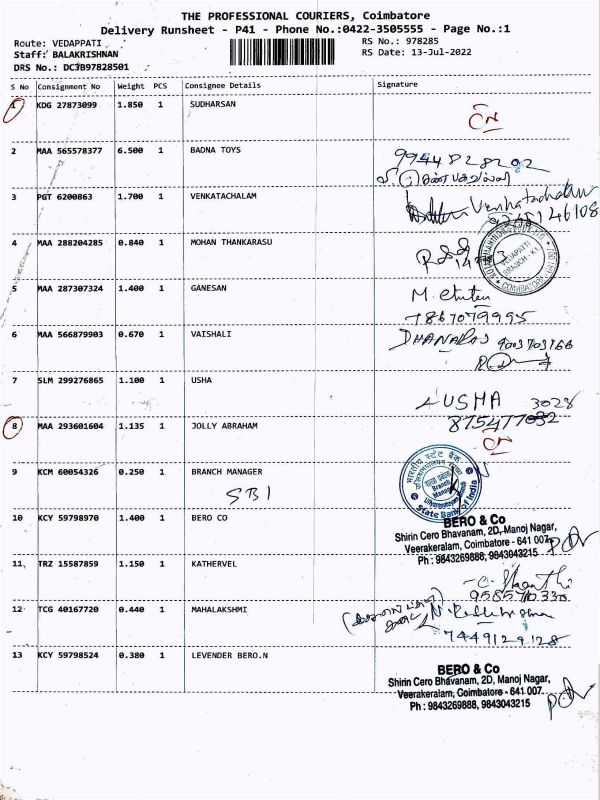 THE PROFESSIONAL COURIERS, Coimbatore
Delivery Runsheet - P41 - Phone No.:0422-3505555 - Page No.:1
Route: VEDAPPATI
RS No.: 978285
Staff: BALAKRISHNAN
RS Date: 13-Jul-2022
DRS No.: DC3B97828501
S No Consignment No Weight PCS Consignee Details Signature
1 KDG 27873099 1.850 1 SUDHARSAN
CN
2 MAA 565578377 6.500 1 BADNA TOYS
9944828202
3 PGT 6200863 1.700 1 VENKATACHALAM
Venkatachalam
4 MAA 288204285 0.840 1 MOHAN THANKARASU
VEDAPATTI
COIMBATORE
5 MAA 287307324 1.400 1 GANESAN
7867079995
6 MAA 566879903 0.670 1 VAISHALI
DHANARAJ
7 SLM 299276865 1.100 1 USHA
USHA 3028
8 MAA 293601604 1.135 1 JOLLY ABRAHAM
CN
9 KCM 60054326 0.250 1 BRANCH MANAGER
SBI
भारतीय स्टेट बैंक
Branch Manager
State Bank of India
10 KCY 59798970 1.400 1 BERO CO
BERO & Co
Shirin Cero Bhavanam, 2D, Manoj Nagar,
Veerakeralam, Coimbatore - 641 007.
Ph : 9843269888, 9843043215
11 TRZ 15587859 1.150 1 KATHERVEL
9585710330
12 TCG 40167720 0.440 1 MAHALAKSHMI
7449129128
13 KCY 59798524 0.380 1 LEVENDER BERO.N
BERO & Co
Shirin Cero Bhavanam, 2D, Manoj Nagar,
Veerakeralam, Coimbatore - 641 007.
Ph : 9843269888, 9843043215